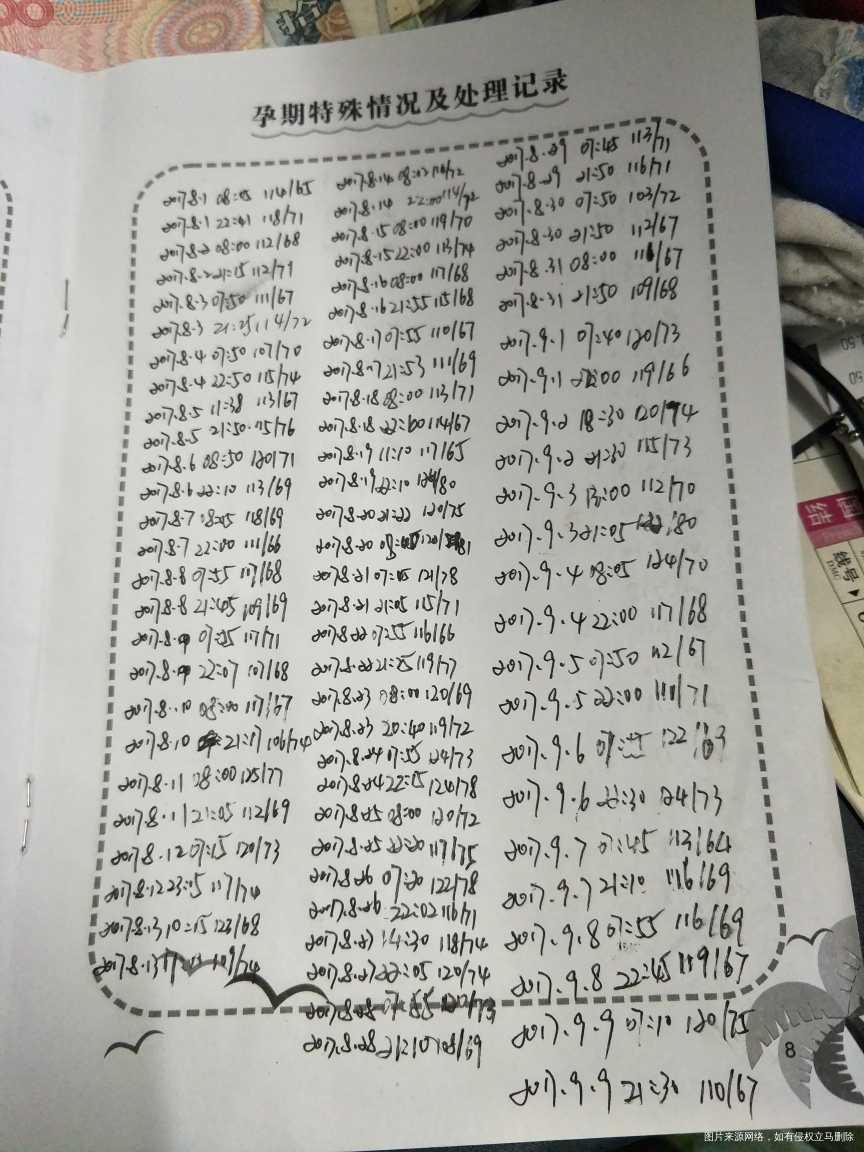 孕期特殊情况及处理记录
2017.8.1 08:05 114/65
2017.8.1 22:41 118/71
2017.8.2 08:00 112/68
2017.8.2 21:15 112/71
2017.8.3 07:50 111/67
2017.8.3 21:25 114/72
2017.8.4 07:50 107/70
2017.8.4 22:50 115/74
2017.8.5 11:38 113/67
2017.8.5 21:50 115/76
2017.8.6 08:50 120/71
2017.8.6 22:10 113/69
2017.8.7 08:05 118/69
2017.8.7 22:00 111/66
2017.8.8 07:55 117/68
2017.8.8 21:05 109/69
2017.8.9 07:55 117/71
2017.8.9 22:07 107/68
2017.8.10 08:00 117/67
2017.8.10 21:17 106/74
2017.8.11 08:00 125/77
2017.8.11 21:05 112/69
2017.8.12 07:15 120/73
2017.8.12 23:15 117/74
2017.8.13 10:15 123/68
2017.8.13 119/74
2017.8.14 08:12 116/72
2017.8.14 22:00 114/72
2017.8.15 08:00 119/70
2017.8.15 22:00 113/74
2017.8.16 08:00 117/68
2017.8.16 21:55 115/68
2017.8.17 07:55 110/67
2017.8.17 21:53 111/69
2017.8.18 08:00 113/71
2017.8.18 22:00 114/67
2017.8.19 11:10 117/65
2017.8.19 22:10 124/80
2017.8.20 21:22 120/75
2017.8.20 120/81
2017.8.21 07:05 121/78
2017.8.21 21:05 115/71
2017.8.22 07:55 116/66
2017.8.22 21:25 119/77
2017.8.23 08:00 120/69
2017.8.23 20:40 119/72
2017.8.24 07:55 124/73
2017.8.24 22:15 120/78
2017.8.25 08:00 120/72
2017.8.25 22:20 117/75
2017.8.26 07:20 122/78
2017.8.26 22:02 116/71
2017.8.27 14:30 118/74
2017.8.27 22:05 120/74
2017.8.28 07:55 120/73
2017.8.28 21:10 108/69
2017.8.29 07:45 113/71
2017.8.29 21:50 116/71
2017.8.30 07:50 103/72
2017.8.30 21:50 112/67
2017.8.31 08:00 116/67
2017.8.31 21:50 109/68
2017.9.1 07:40 120/73
2017.9.1 22:00 119/66
2017.9.2 18:30 120/74
2017.9.2 21:30 115/73
2017.9.3 13:00 112/70
2017.9.3 21:05 /80
2017.9.4 08:05 124/70
2017.9.4 22:00 117/68
2017.9.5 07:50 112/67
2017.9.5 22:00 111/71
2017.9.6 122/69
2017.9.6 22:30 124/73
2017.9.7 07:45 113/64
2017.9.7 21:10 116/69
2017.9.8 07:55 116/69
2017.9.8 22:45 119/67
2017.9.9 07:10 120/75
2017.9.9 21:30 110/67
8
线号
结
图片来源网络，如有侵权立马删除